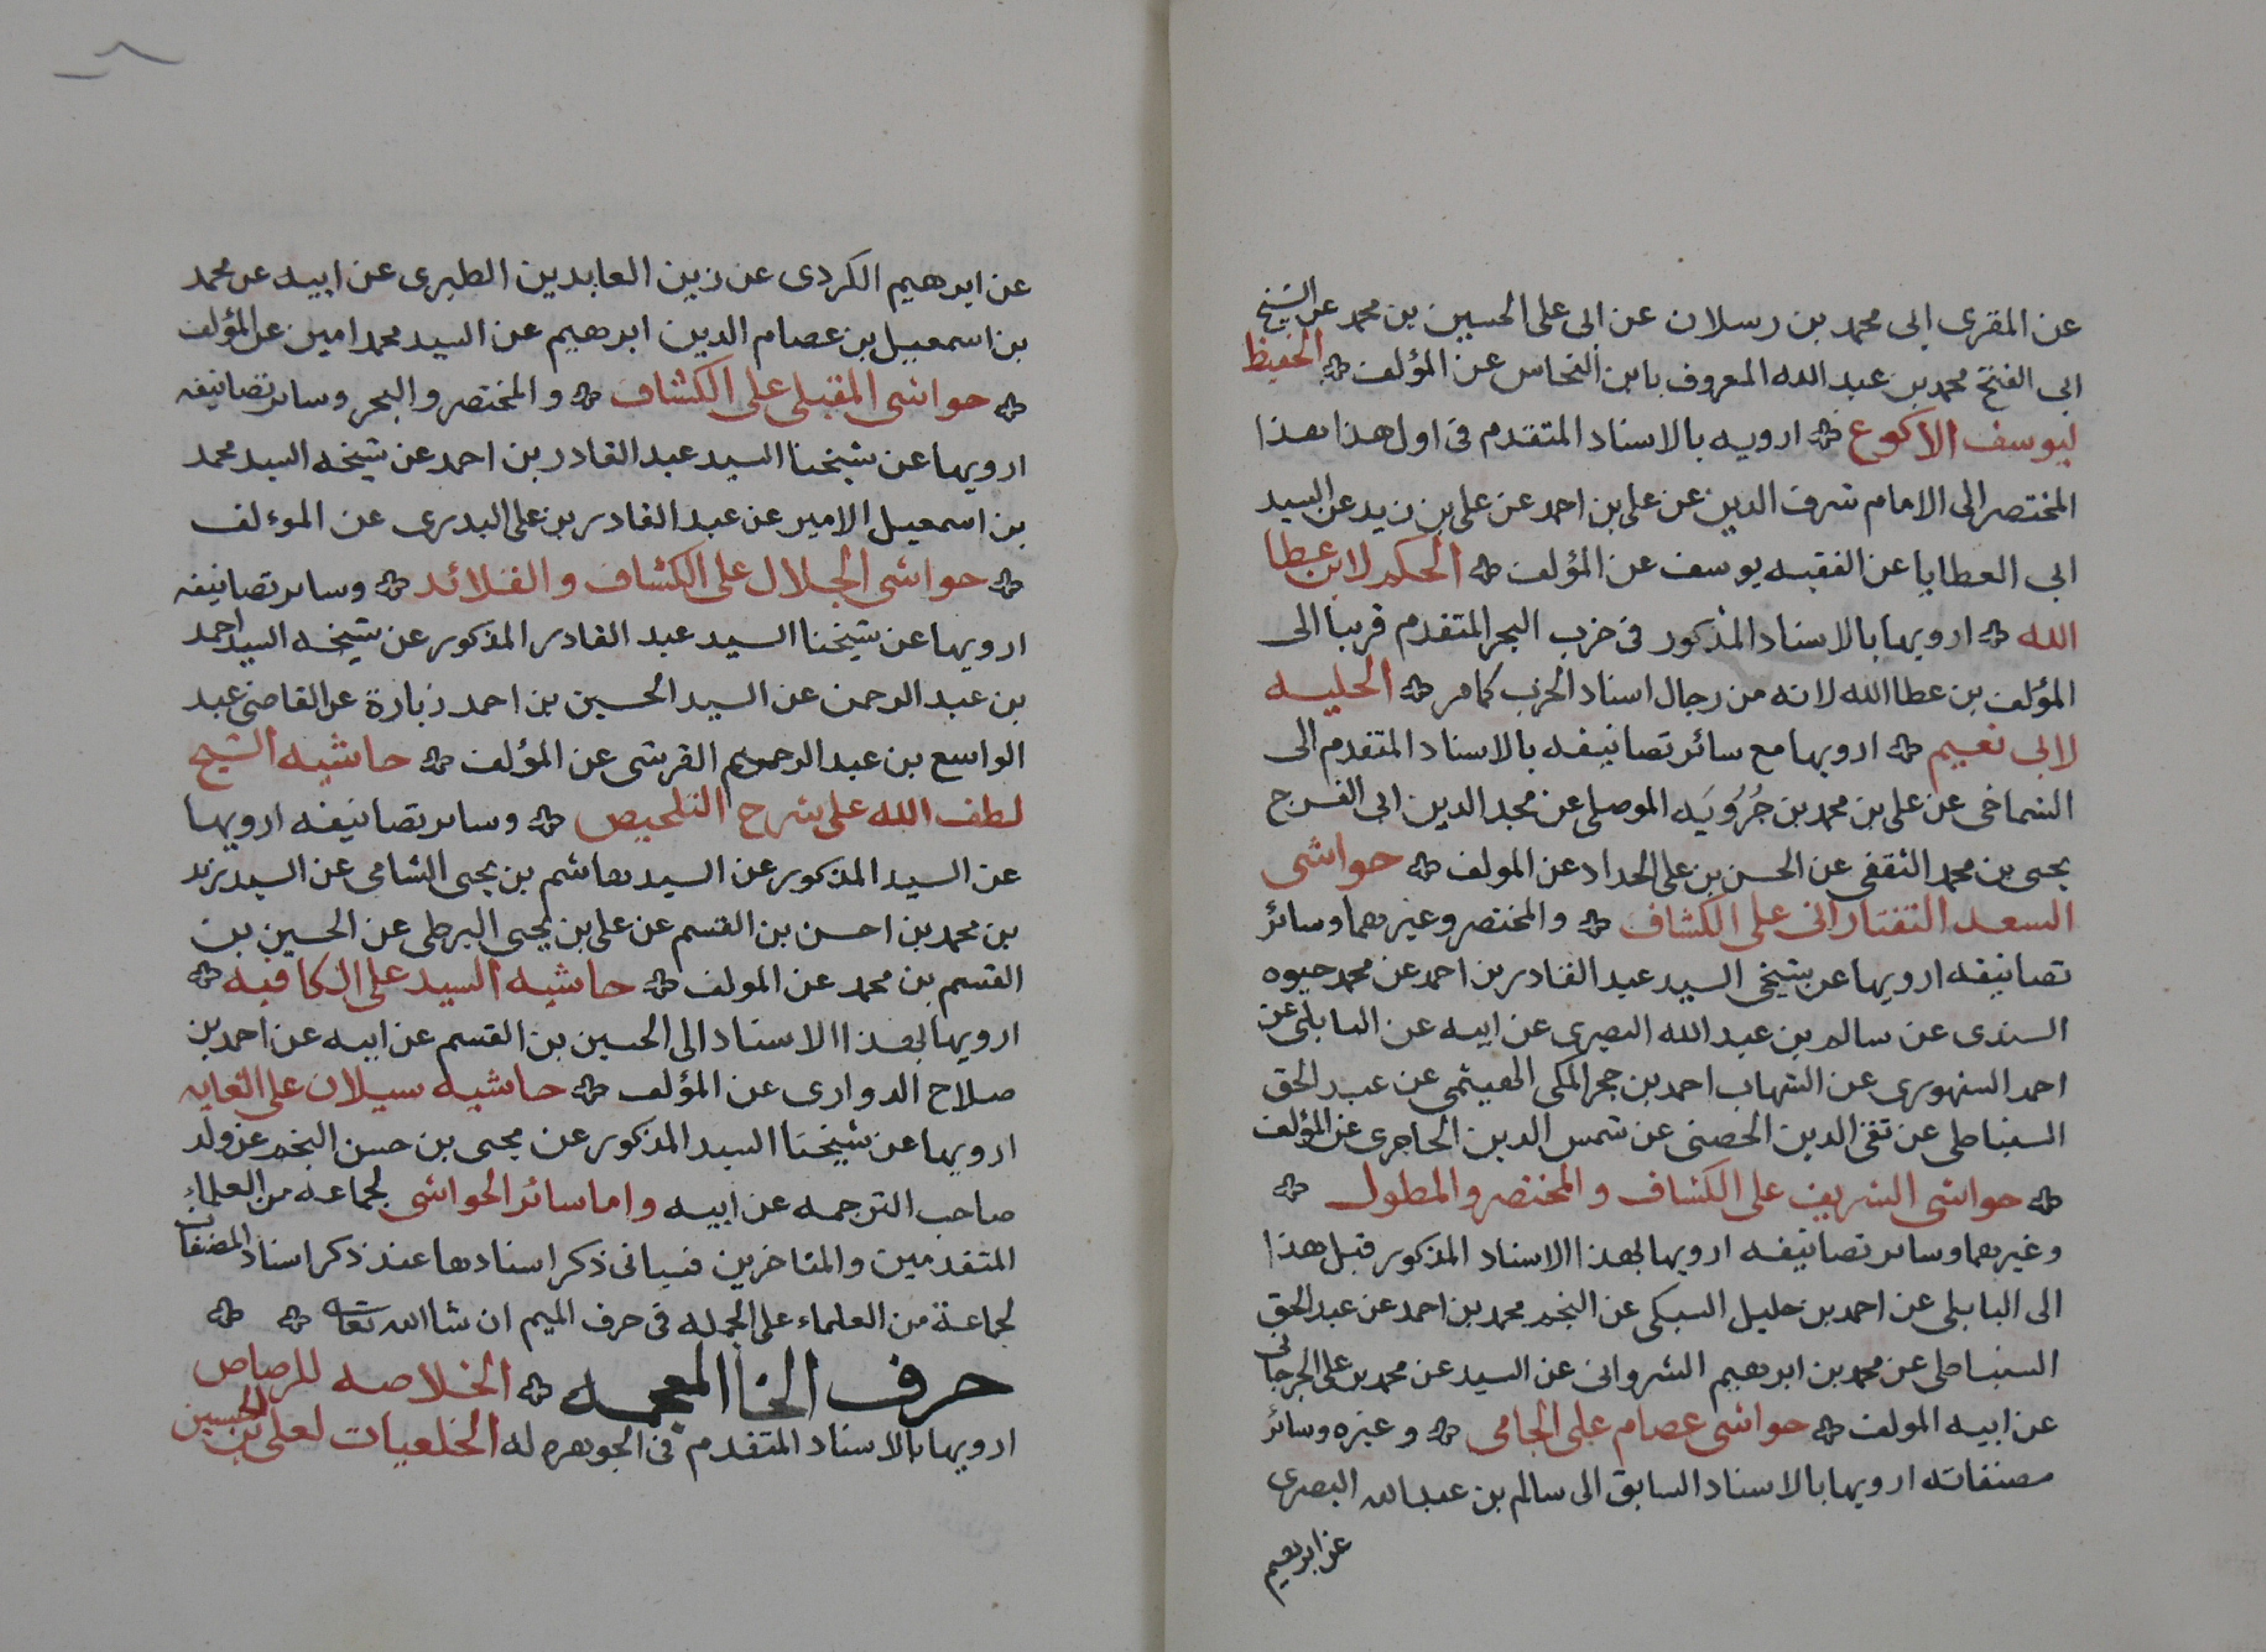 عن المقرى ابى محمد بن رسلان عن ابى على الحسين بن محمد عن الشيخ
ابى الفتح محمد بن عبد الله المعروف بابن النحاس عن المؤلف الحفيظ
ليوسف الاكوع ارويه بالاسناد المتقدم فى اول هذا
المختصر الى الامام شرف الدين عن على بن احمد عن على بن زيد عن السيد
ابى العطايا عن الفقيه يوسف عن المؤلف الحكم لابن عطا
الله ارويها بالاسناد المذكور فى حزب البحر المتقدم قريبا الى
المؤلف بن عطا الله لانه من رجال اسناد الحزب كما مر الحليه
لابى نعيم ارويها مع سائر تصانيفه بالاسناد المتقدم الى
الشماخى عن على بن محمد بن جُرُويَه الموصلى عن مجد الدين ابى الفرج
يحيى بن محمد الثقفى عن الحسن بن على الحداد عن المولف حواشى
السعد التفتازانى على الكشاف والمختصر وغيرهما وسائر
تصانيفه ارويها عن شيخى السيد عبد القادر بن احمد عن محمد حيوه
السندى عن سالم بن عبد الله البصرى عن ابيه عن البابلى عن
احمد السنهورى عن الشهاب احمد بن حجر المكى الهيثمى عن عبد الحق
السنباطى عن تقى الدين الحصنى عن شمس الدين الحاجرى عن المؤلف
حواشى الشريف على الكشاف والمختصر والمطول
وغيرهما وساير تصانيفه ارويها بهذا الاسناد المذكور قبل هذا
الى البابلى عن احمد بن خليل السبكى عن النجم محمد بن احمد عن عبد الحق
السنباطى عن محمد بن ابرهيم الشروانى عن السيد عن محمد بن على الجرجانى
عن ابيه المولف حواشى عصام على الجامى وغيره وسائر
مصنفاته ارويها بالاسناد السابق الى سالم بن عبد الله البصرى
عن ابرهيم
عن ابرهيم الكردى عن زين العابدين الطبرى عن ابيه عن محمد
بن اسمعيل بن عصام الدين ابرهيم عن السيد محمد امين عن المؤلف
حواشى المقبلى على الكشاف والمختصر والبحر وساير تصانيفه
ارويها عن شيخنا السيد عبد القادر بن احمد عن شيخه السيد محمد
بن اسمعيل الامير عن عبد القادر بن على البدرى عن الموءلف
حواشى الجلال على الكشاف والقلائد وساير تصانيفه
ارويها عن شيخنا السيد عبد القادر المذكور عن شيخه السيد احمد
بن عبد الرحمن عن السيد الحسين بن احمد زبارة عن القاضى عبد
الواسع بن عبد الرحمن القرشى عن المؤلف حاشيه الشيخ
لطف الله على شرح التلخيص وساير تصانيفه ارويها
عن السيد المذكور عن السيد هاشم بن يحيى الشامى عن السيد زيد
بن محمد بن احسن بن القسم عن على بن يحيى البرطى عن الحسين بن
القسم بن محمد عن المولف حاشيه السيد على الكافيه
ارويها بهذا الاسناد الى الحسين بن القسم عن ابيه عن احمد بن
صلاح الدوارى عن المؤلف حاشيه سيلان على الغايه
ارويها عن شيخنا السيد المذكور عن محيى بن حسن النجم عن ولد
صاحب الترجمه عن ابيه واما سائر الحواشى لجماعه من العلماء
المتقدمين والمتاخرين فسياتى ذكر اسنادها عند ذكر اسناد المصنفات
لجماعة من العلماء على الجمله فى حرف الميم ان شا الله تعالى
حرف الخا المعجمه الخلاصه للرصاص
ارويها بالاسناد المتقدم فى الجوهره له الخلعيات لعلى بن الحسين